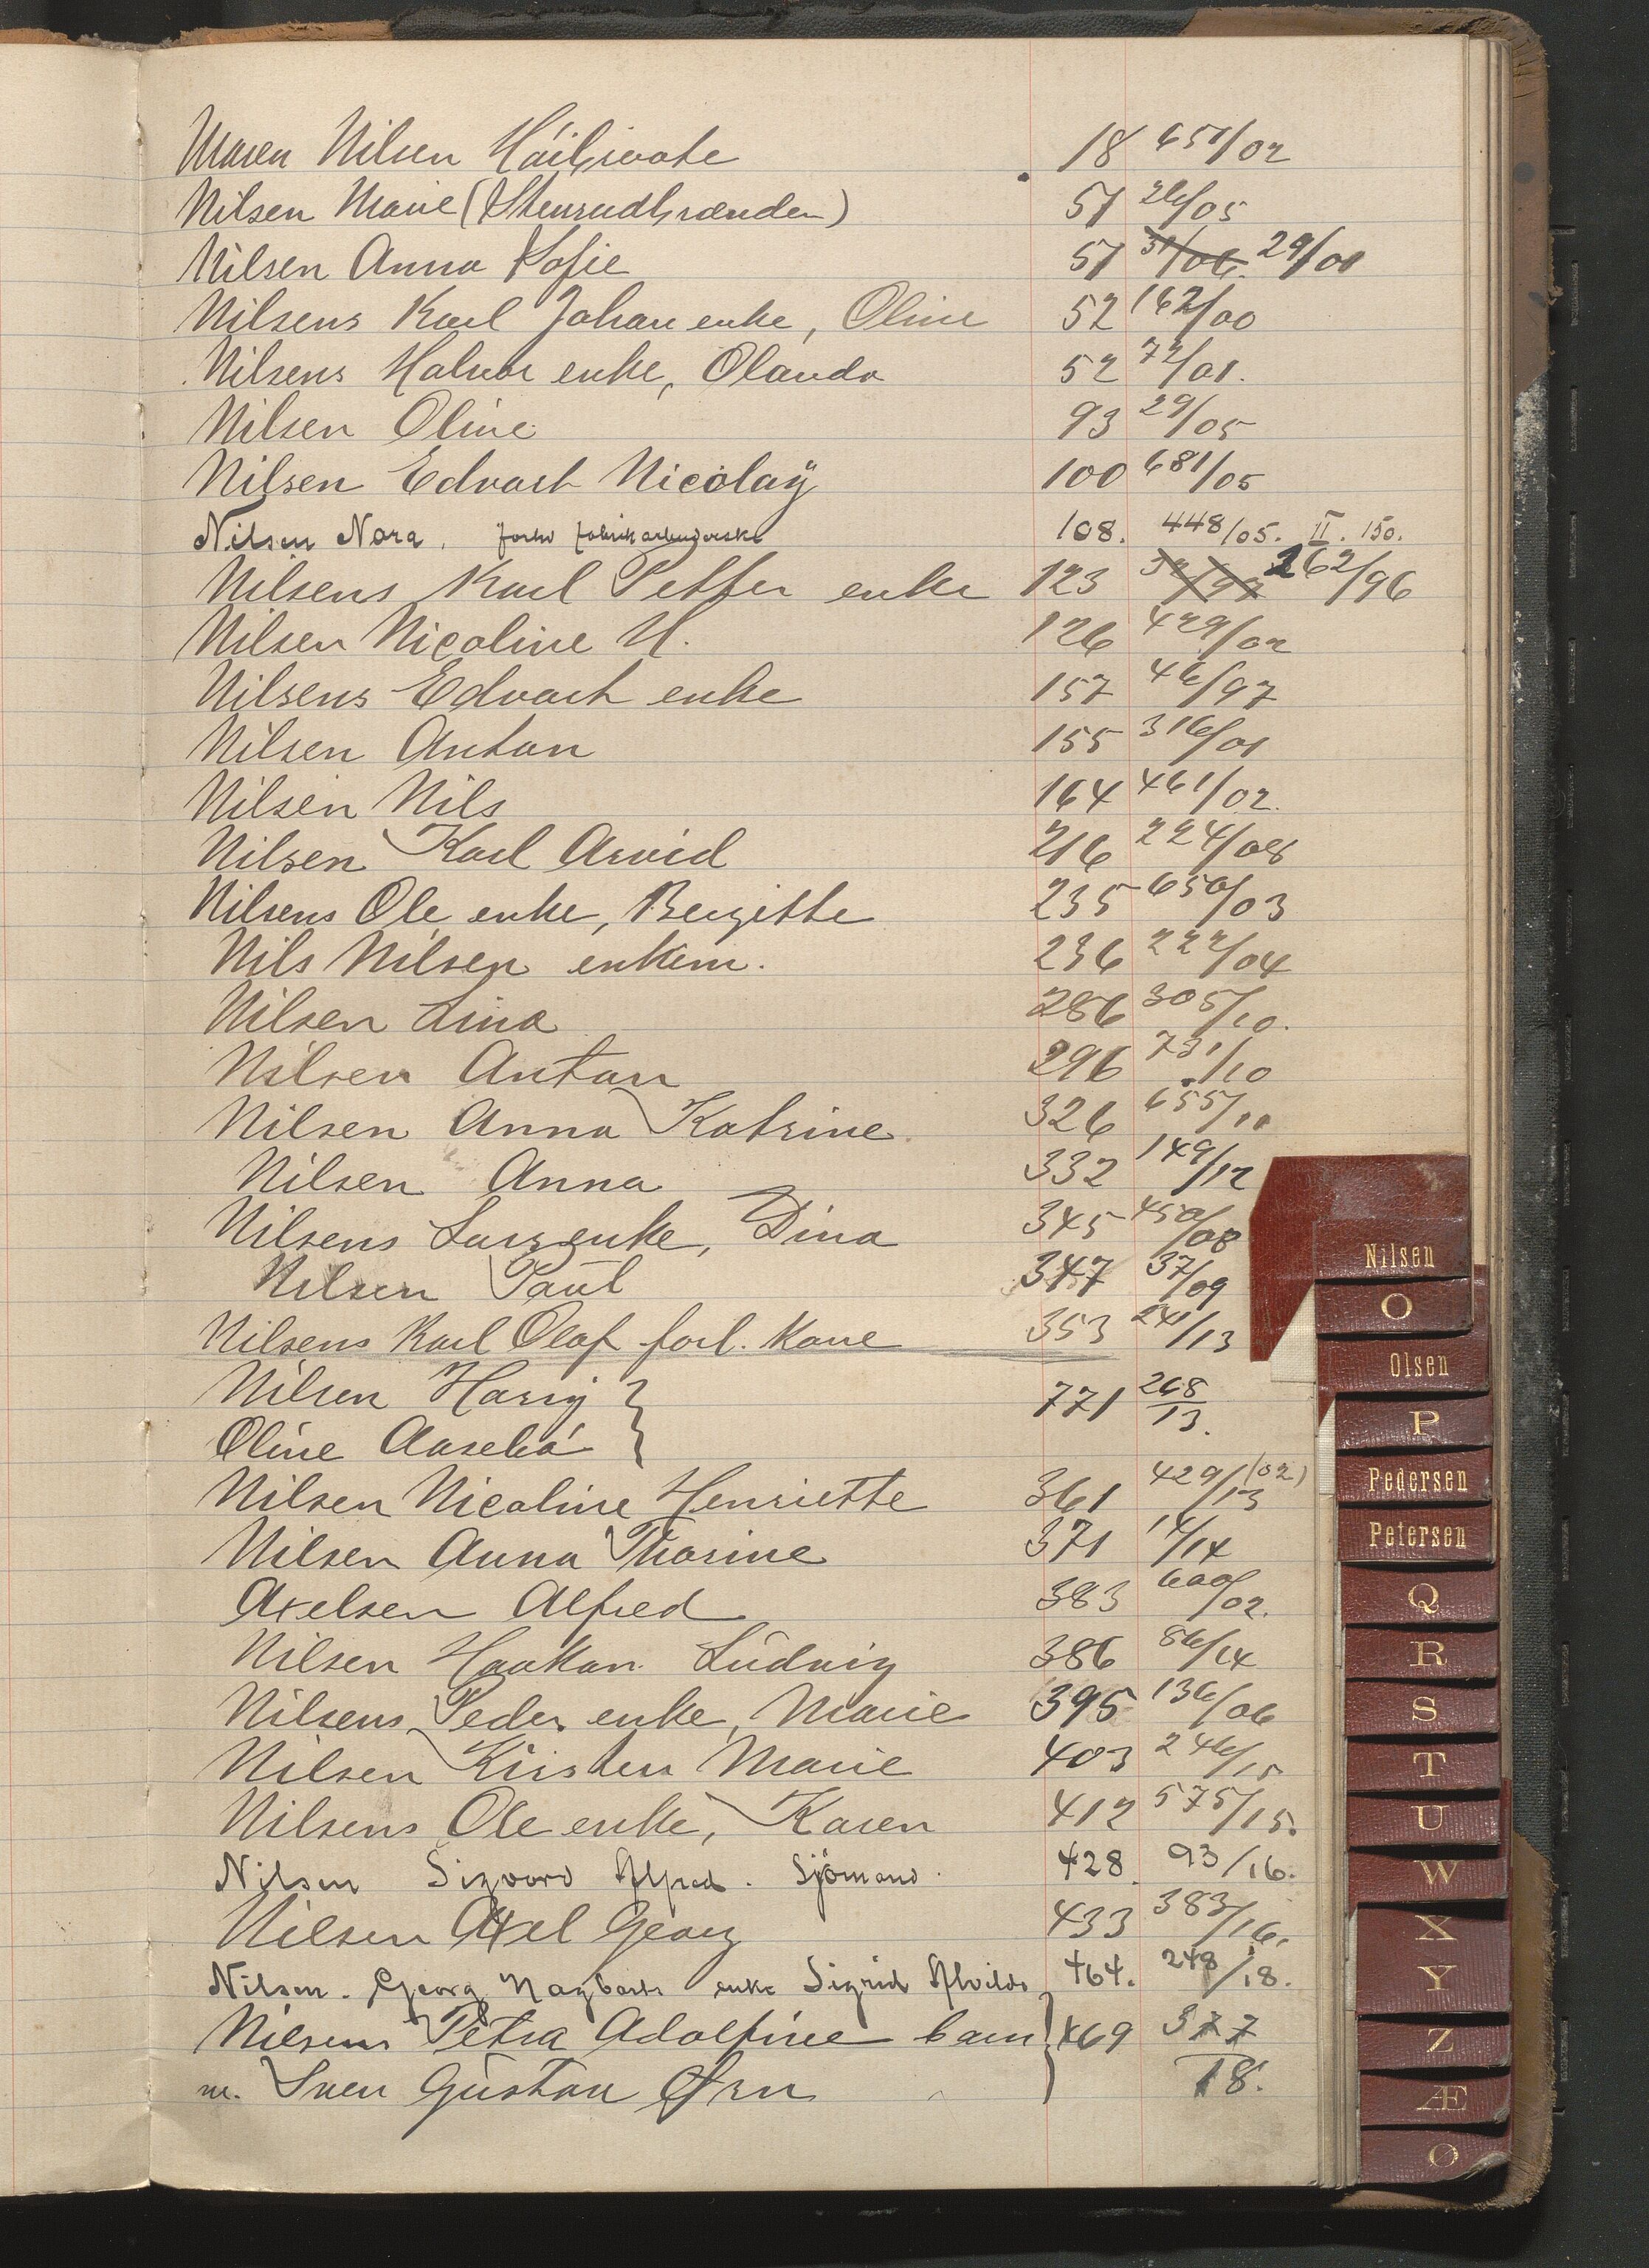 Maren Nilsen 18 651/02
Nilsen Marie (Stensrudbraenden) 51 26/05
Nilsen Anna Sofie 51 31/06. 29/01
Nilsens Karl Johan enke, Oline 52 162/00
Nilsens Halvor enke, Olanda 52 72/01.
Nilsen Oline 93 29/05
Nilsen Edvart Nicolaÿ 100 681/05
Nilsen Nora. fabrikarbeiderske 108. 448/05. II. 150.
Nilsens Karl Petter enke 123 262/96
Nilsen Nicoline H. 126 429/02
Nilsens Edvart enke 157 46/97
Nilsen Anton 155 316/01
Nilsen Nils 164 461/02.
Nilsen Karl Arvid 216 224/08
Nilsens Ole enke, Bergitte 235 650/03
Nils Nilsen enkem. 236 222/04
Nilsen Lina 286 305/10.
Nilsen Anton 296 731/10
Nilsen Anna Katrine 326 655/11
Nilsen Anna 332 149/12
Nilsens Lars enke, Dina 345 450/08
Nilsen Paul 347 37/09
Nilsens Karl Olaf forl. Kone 353 241/13
Nilsen Harry } 771 268/13.
Oline Aaselia }
Nilsen Nicoline Henriette 361 429/13 (02)
Nilsen Anna Thorine 371 14/14
Axelsen Alfred 383 600/02.
Nilsen Haakon Ludvig 386 86/14
Nilsens Peder enke, Marie 395 136/06
Nilsen Kirsten Marie 403 246/15
Nilsens Ole enke, Karen 412 575/15.
Nilsen Sigvard Alfred. Sjömand. 428 93/16.
Nilsen Axel Georg 433 383/16.
Nilsen. Georg Nagbarts enke Sigrid Alvilda 464. 248/18.
Nilsens Petra Adolfine barn } 469 377/18.
m. Sven Gustav Ørn
Nilsen
O
Olsen
P
Pedersen
Petersen
Q
R
S
T
U
W
X
Y
Z
Æ
Ø